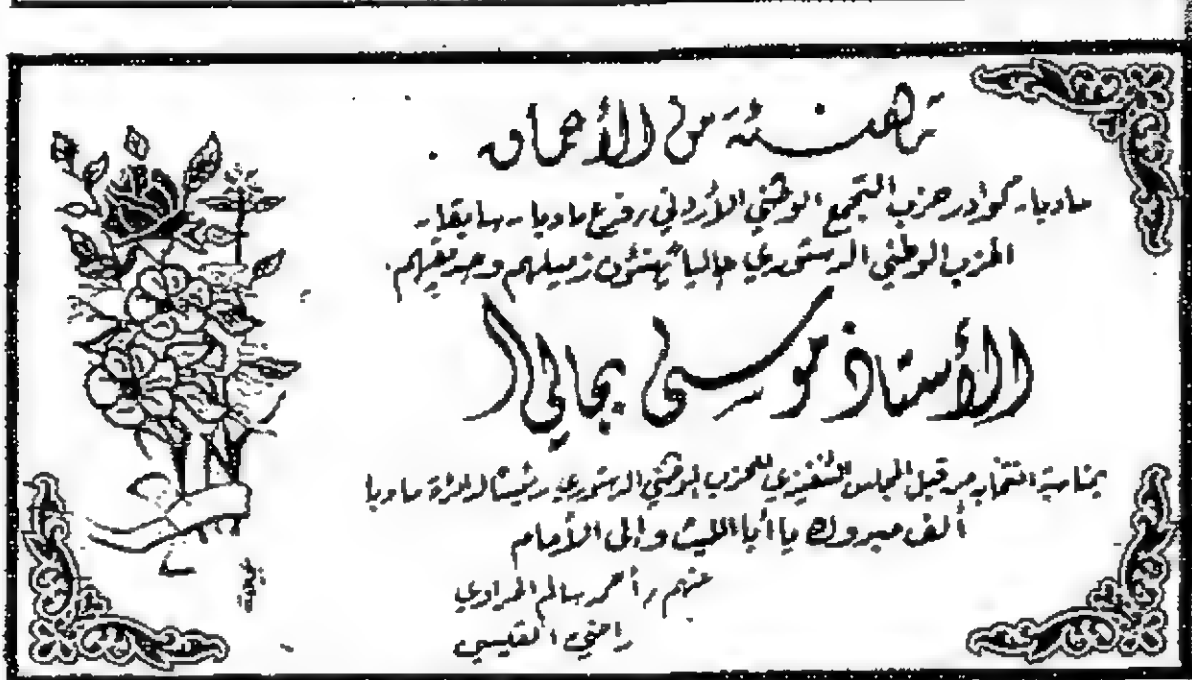 تهنئة من الأعماق
مادبا - كوادر حزب التجمع الوطني الأردني / فرع مادبا - سابقا -
الحزب الوطني الدستوري حالياً يهنئون زميلهم وصديقهم.
الأستاذ موسى
بمناسبة انتخابه من قبل المجلس التنفيذي للحزب الوطني الدستوري رئيساً لدائرة مادبا
ألف مبروك يا أبا الليث وإلى الأمام
عنهم / أحمد سالم
راضي القيسي